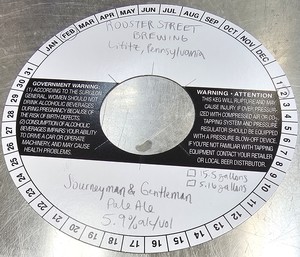 JAN FEB MAR APR MAY JUN JUL AUG SEP OCT NOV DEC
ROOSTER STREET
BREWING
Lititz, Pennsylvania
GOVERNMENT WARNING:
(1) ACCORDING TO THE SURGEON
GENERAL WOMEN SHOULD NOT
DRINK ALCOHOLIC BEVERAGES
DURING PREGNANCY BECAUSE OF
THE RISK OF BIRTH DEFECTS.
(2) CONSUMPTION OF ALCOHOLIC
BEVERAGES IMPAIRS YOUR ABILITY
TO DRIVE A CAR OR OPERATE
MACHINERY, AND MAY CAUSE
HEALTH PROBLEMS.
WARNING • ATTENTION
THIS KEG WILL RUPTURE AND MAY
CAUSE INJURY IF OVER PRESSUR-
IZED WITH COMPRESSED AIR OR CO2
TAPPING SYSTEM AND PRESSURE
REGULATOR SHOULD BE EQUIPPED
WITH A PRESSURE BLOW-OFF DEVICE.
IF YOU'RE NOT FAMILIAR WITH TAPPING
EQUIPMENT CONTACT YOUR RETAILER
OR LOCAL BEER DISTRIBUTOR.
15.5 gallons
5.16 gallons
Journeyman & Gentleman
Pale Ale
5.9% alc/vol
1 2 3 4 5 6 7 8 9 10 11 12 13 14 15 16 17 18 19 20 21 22 23 24 25 26 27 28 29 30 31